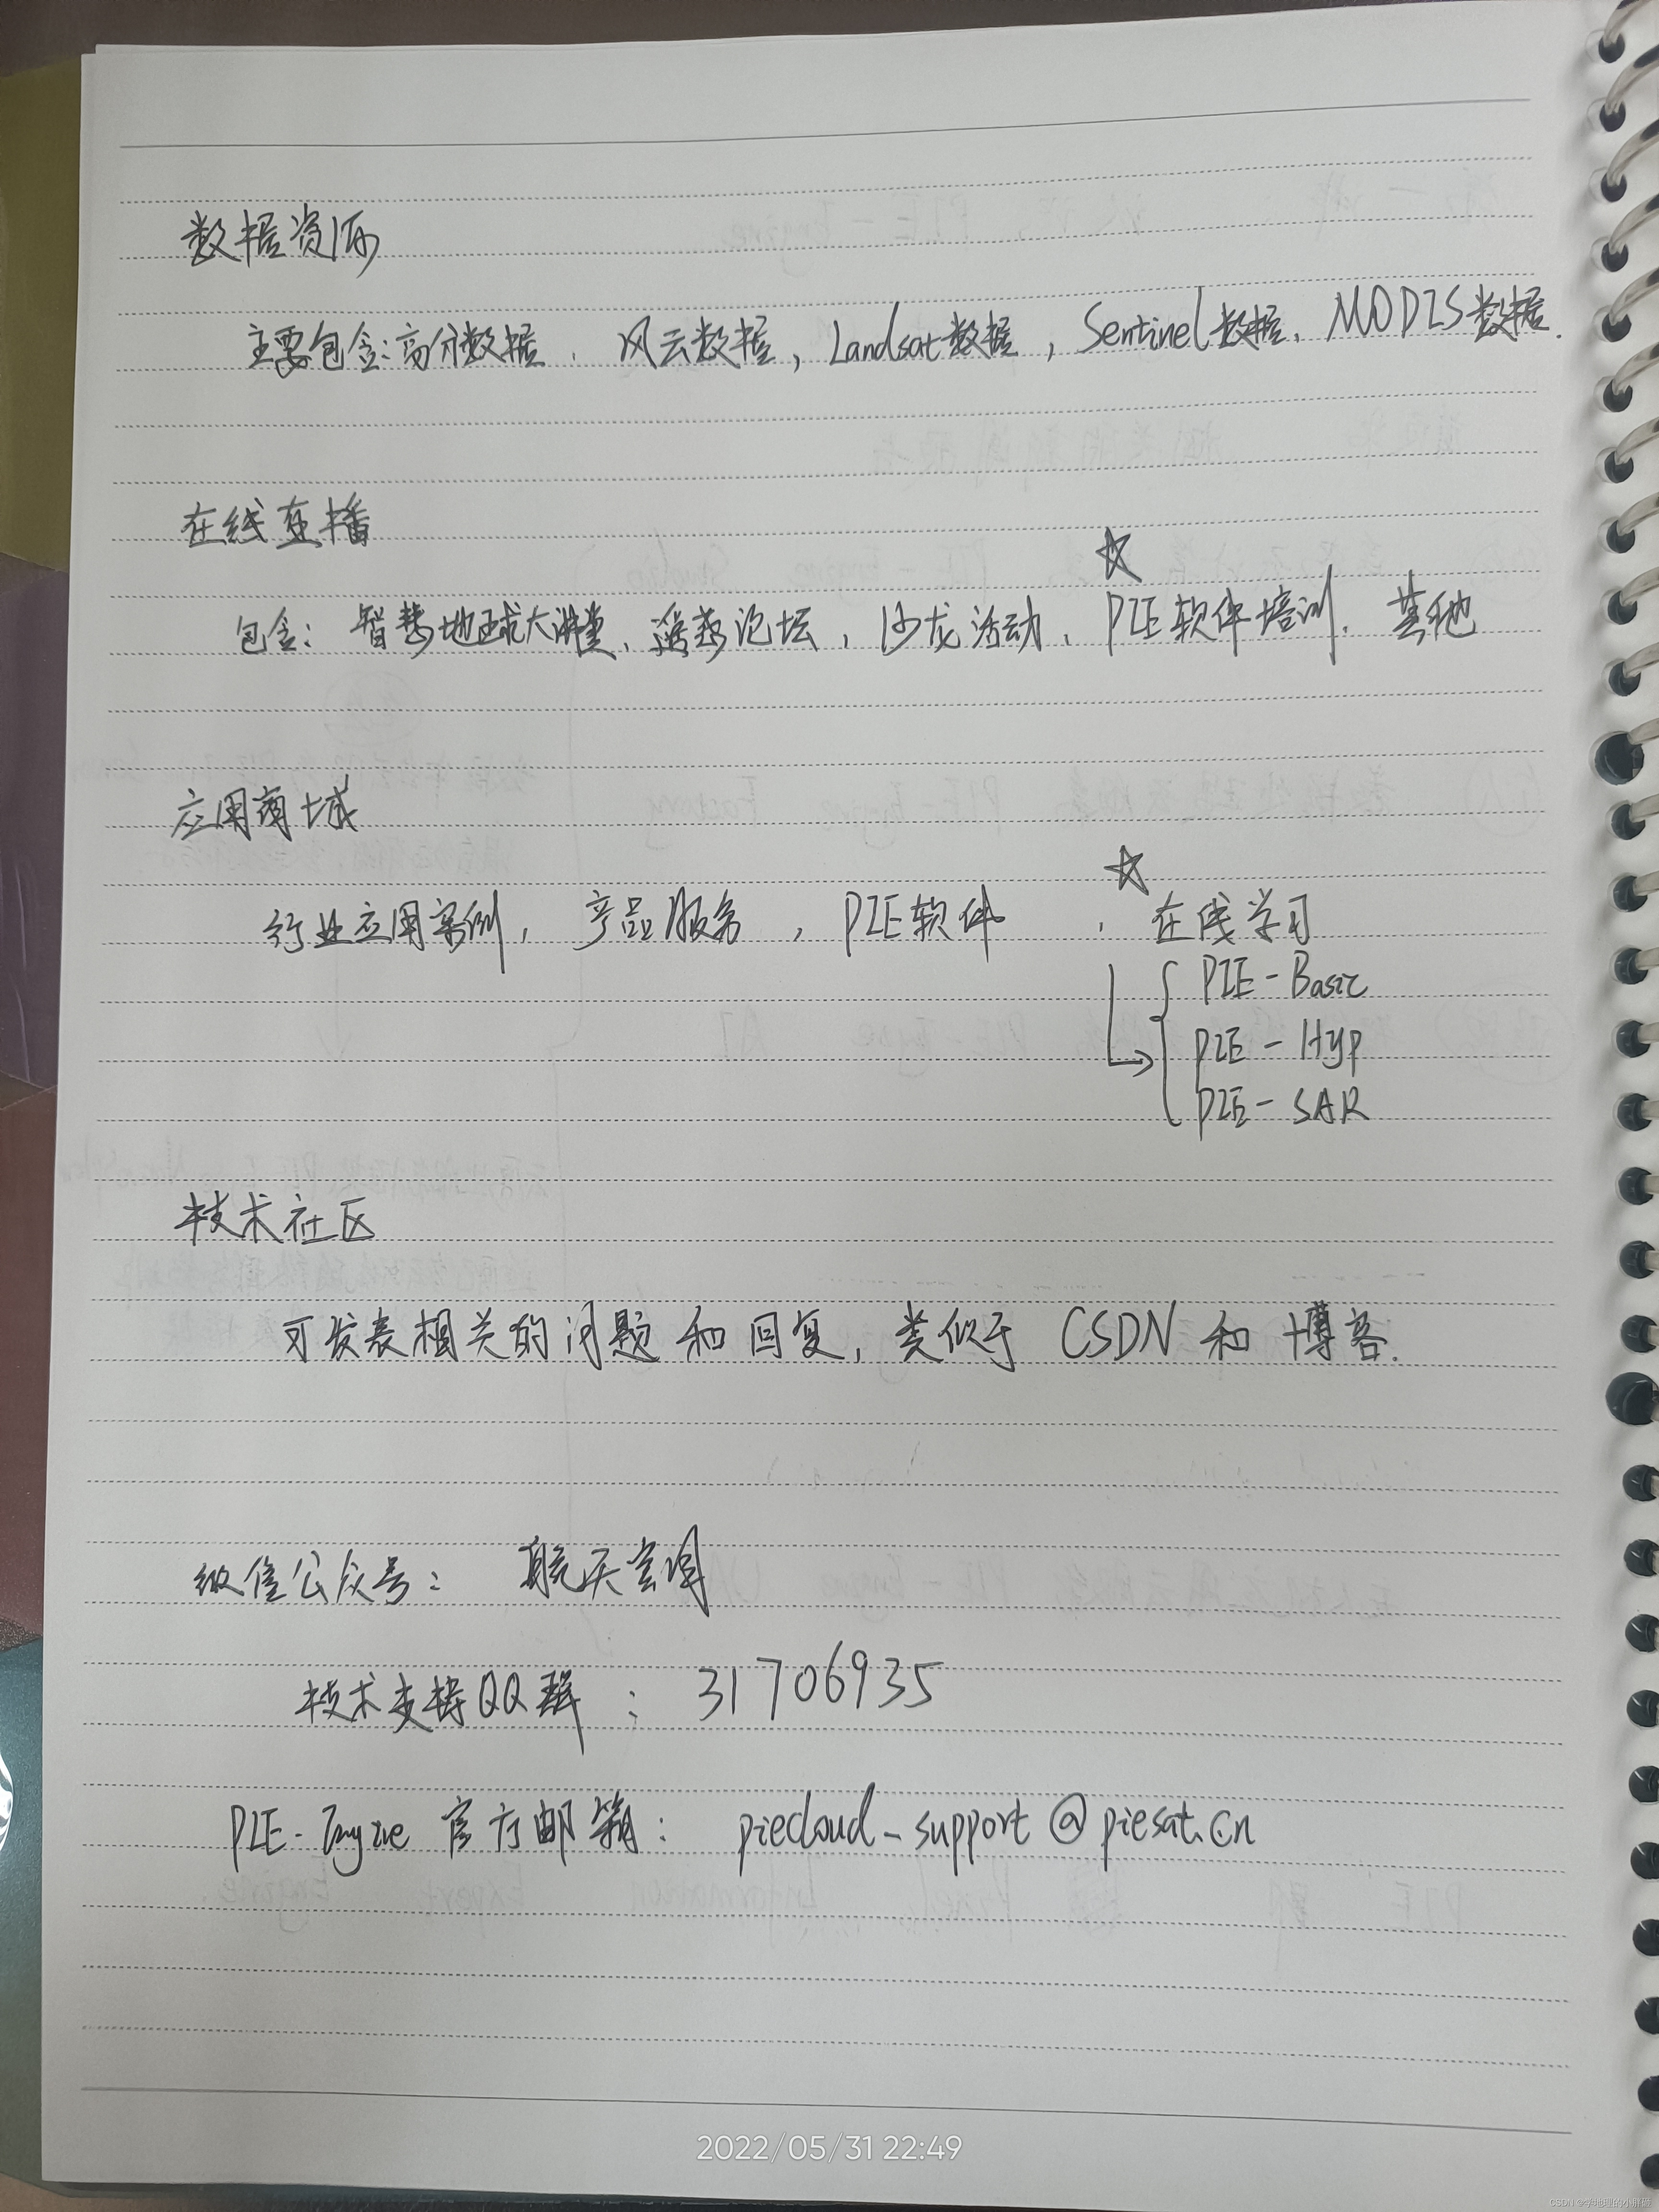 数据资源
主要包含:高分数据、风云数据,Landsat数据,Sentinel数据、MODIS数据.
在线直播
☆
包含:智慧地球大讲堂、遥感论坛,沙龙活动、PIE软件培训、其他
应用领域
☆
行业应用案例,产品服务,PIE软件、在线学习
PIE-Basic
PIE-Hyp
PIE-SAR
技术社区
可发表相关的问题和回复,类似于CSDN和博客.
微信公众号:航天宏图
技术支持QQ群:31706935
PIE-Engine官方邮箱:piecloud_support@piesat.cn
2022/05/31 22:49
CSDN @学地理的小胖砸